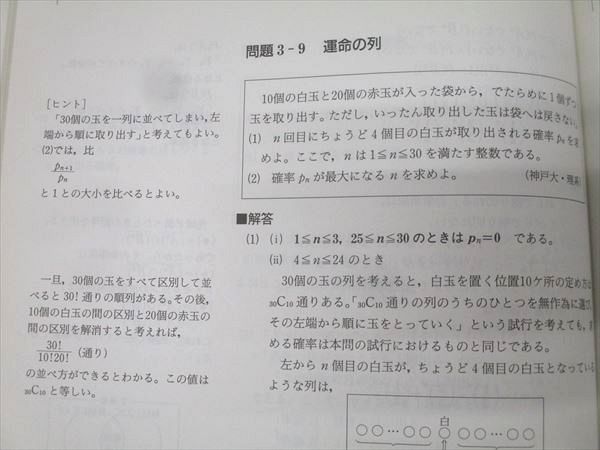 問題3-9 運命の列
10個の白玉と20個の赤玉が入った袋から，でたらめに1個ずつ
玉を取り出す。ただし，いったん取り出した玉は袋へは戻さない。
(1) n回目にちょうど4個目の白玉が取り出される確率pₙを求
めよ。ここで，nは1≦n≦30を満たす整数である。
(2) 確率pₙが最大になるnを求めよ。 (神戸大・理系)
[ヒント]
「30個の玉を一列に並べてしまい，左
端から順に取り出す」と考えてもよい。
(2)では，比
pₙ₊₁
pₙ
と1との大小を比べるとよい。
■解答
(1) (i) 1≦n≦3，25≦n≦30のときはpₙ=0 である。
(ii) 4≦n≦24のとき
30個の玉の列を考えると，白玉を置く位置10ケ所の定め方は
₃₀C₁₀通りある。「₃₀C₁₀通りの列のうちのひとつを無作為に選び，
その左端から順に玉をとっていく」という試行を考えても，求
める確率は本問の試行におけるものと同じである。
左からn個目の白玉が，ちょうど4個目の白玉となっている
ような列は，
白
○○…○○ ○ ○○…○○
⇑
一旦，30個の玉をすべて区別して並
べると30！通りの順列がある。その後，
10個の白玉の間の区別と20個の赤玉の
間の区別を解消すると考えれば，
30！
10！20！
(通り)
の並べ方ができるとわかる。この値は
₃₀C₁₀と等しい。